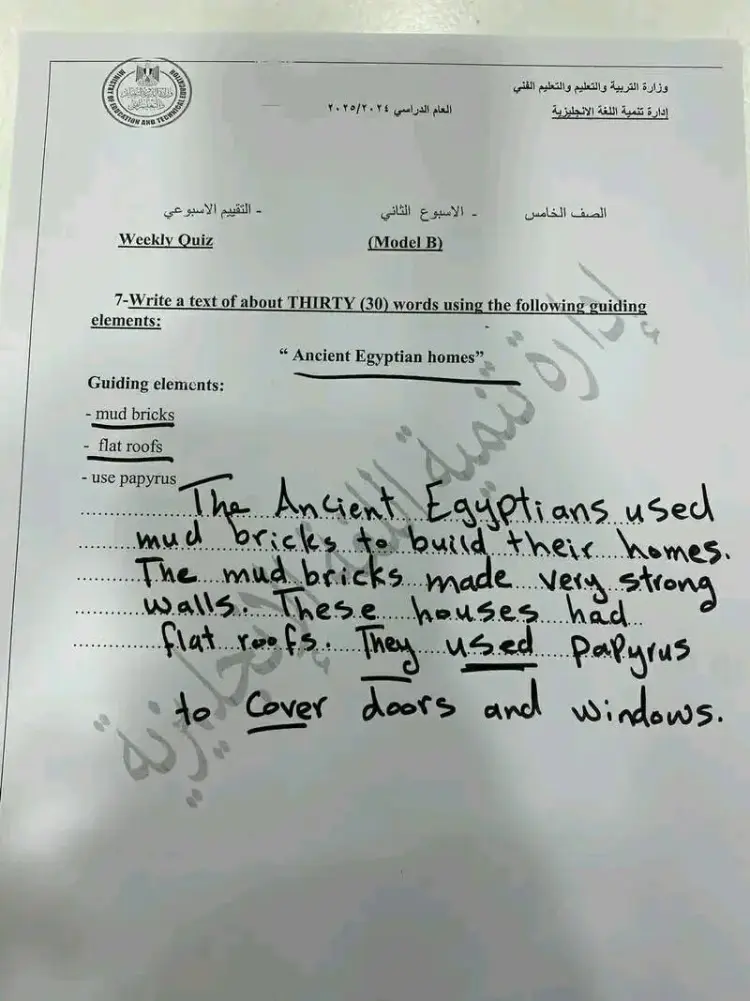 وزارة التربية والتعليم والتعليم الفني
العام الدراسي ٢٠٢٥/٢٠٢٤
إدارة تنمية اللغة الانجليزية
الصف الخامس - الاسبوع الثاني - التقييم الاسبوعي
Weekly Quiz (Model B)
7-Write a text of about THIRTY (30) words using the following guiding
elements:
“ Ancient Egyptian homes”
Guiding elements:
- mud bricks
- flat roofs
- use papyrus
The Ancient Egyptians used
mud bricks to build their homes.
The mud bricks made very strong
walls. These houses had
flat roofs. They used papyrus
to cover doors and windows.
إدارة تنمية اللغة الإنجليزية